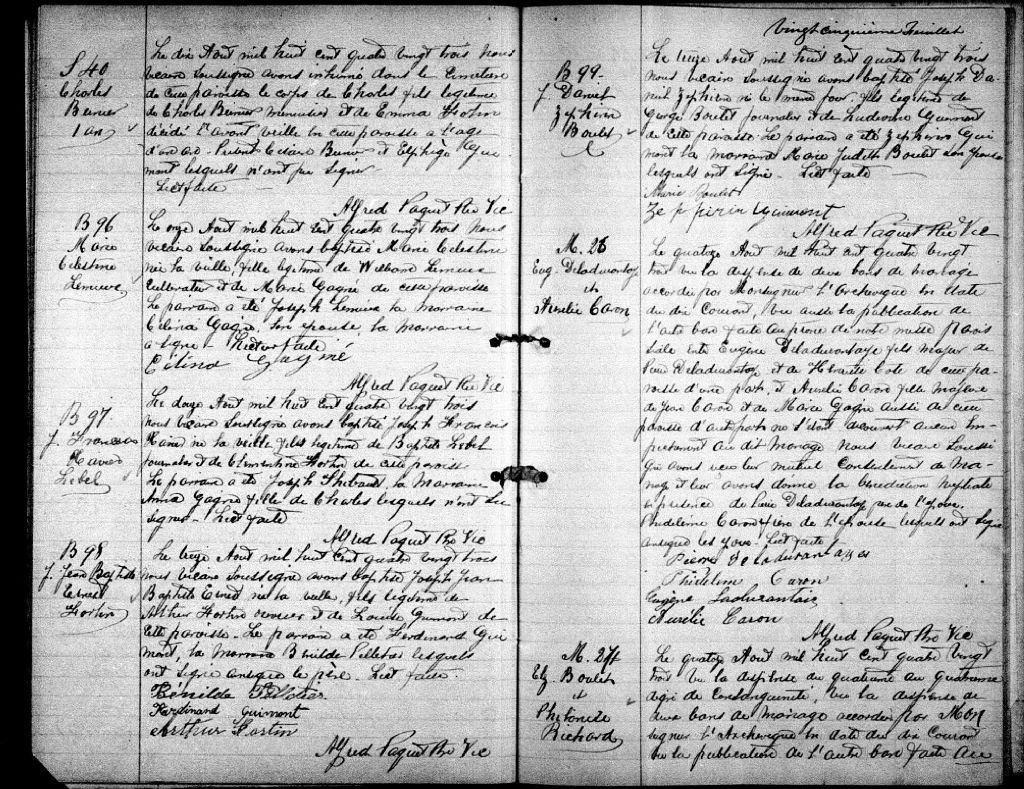 S 40
Charles
Bernier
1 an
Le dix Aout mil huit cent quatre vingt trois nous
vicaire soussigné avons inhumé dans le cimetiere
de cette paroisse le corps de Charles fils legitime
de Charles Bernier menuisier et de Emma Fortin
décédé l'avant veille en cette paroisse a l'age
d'un an. Presents Cesaire Bernier et Elzhège Gui
mont lesquels n'ont pu signer
Lect faite
Alfred Paquet Ptre Vic
B 96
Marie
Celestine
Lemieux
Le onze Aout mil huit cent quatre vingt trois nous
vicaire soussigné avons baptisé Marie Celestine
née la veille, fille legitime de Wilbrod Lemieux
Cultivateur et de Marie Gagné de cette paroisse
Le parrain a été Joseph Lemieux la marraine
Celina Gagné son epouse, la marraine
a signé - Lecture faite
Célina Gagné
Alfred Paquet Ptre Vic
B 97
J. Francois
Xavier
Lebel
Le douze Aout mil huit cent quatre vingt trois
nous vicaire soussigné avons baptisé Joseph Francois
Xavier né la veille fils legitime de Baptiste Lebel
journalier et de Clementine Fortin de cette paroisse
Le parrain a été Joseph Thibault, la marraine
Anna Gagné fille de Charles lesquels n'ont su
signer - Lect faite
Alfred Paquet Ptre Vic
B 98
J. Jean Baptiste
Ernest
Fortin
Le treize Aout mil huit cent quatre vingt trois
nous vicaire soussigné avons baptisé Joseph Jean
Baptiste Ernest né la veille, fils legitime de
Arthur Fortin et de Louise Guimont de
cette paroisse. Le parrain a été Ferdinand Gui
mont, la marraine Benilde Pelletier lesquels
ont signé avec le père. Lect faite.
Bénilde Pelletier
Ferdinand Guimont
Arthur Fortin
Alfred Paquet Ptre Vic
Vingt cinquième Feuillet
B 99
J. Daniel
Zephirin
Boulet
Le treize Aout mil huit cent quatre vingt trois
nous vicaire soussigné avons baptisé Joseph Da-
niel Zephirin né le meme jour, fils legitime de
George Boulet journalier et de Ludivine Guimont
de cette paroisse. Le parrain a été Zephirin Gui
mont la marraine Marie Judith Boulet son epouse
lesquels ont signé. Lect faite
Marie Boulet
Zeppirin Guimont
Alfred Paquet Ptre Vic
M. 26
Eug. Deladurantaye
et
Aurélie Caron
Le quatorze Aout mil huit cent quatre vingt
trois vu la dispense de deux bans de mariage
accordée par Monseigneur l'Archeveque en date
du dix Courant, vu aussi la publication de
l'autre ban faite au prone de notre messe parois
siale entre Eugène Deladurantaye fils majeur de
Pierre Deladurantaye et de Henriette Coté de cette pa-
roisse d'une part, et Aurélie Caron fille majeure
de Jean Caron et de Marie Gagné aussi de cette
paroisse d'autre part ne s'étant decouvert aucun em-
pechement au dit mariage nous vicaire soussi
gné avons recu leur mutuel Consentement de ma-
riage et leur avons donné la benediction nuptiale
en presence de Pierre Deladurantaye pere de l'epoux,
Phidelime Caron frère de l'epouse lesquels ont signé
avec les epoux. Lect faite
Pierre deladurantayes
Phidelim Caron
Eugène Ladurantaie
Aurélie Caron
Alfred Paquet Ptre Vic
M. 27
Elz. Boulet
et
Philonise
Richard
Le quatorze Aout mil huit cent quatre vingt
trois vu la dispense du quatrieme au quatrieme
degré de consanguinité, vu la dispense de
deux bans de mariage accordées par Mon
seigneur l'Archeveque en date du dix Courant
vu la publication de l'autre ban faite au